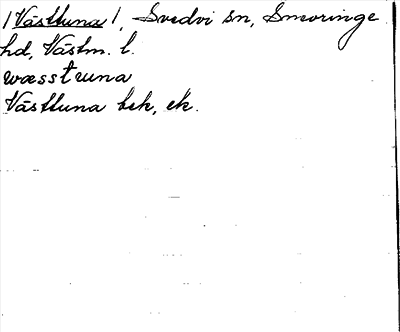 /Västtuna/, Svedvi sn, Snevringe
hd, Västm. l.
wæsstuuna
Västtuna bek, ek.